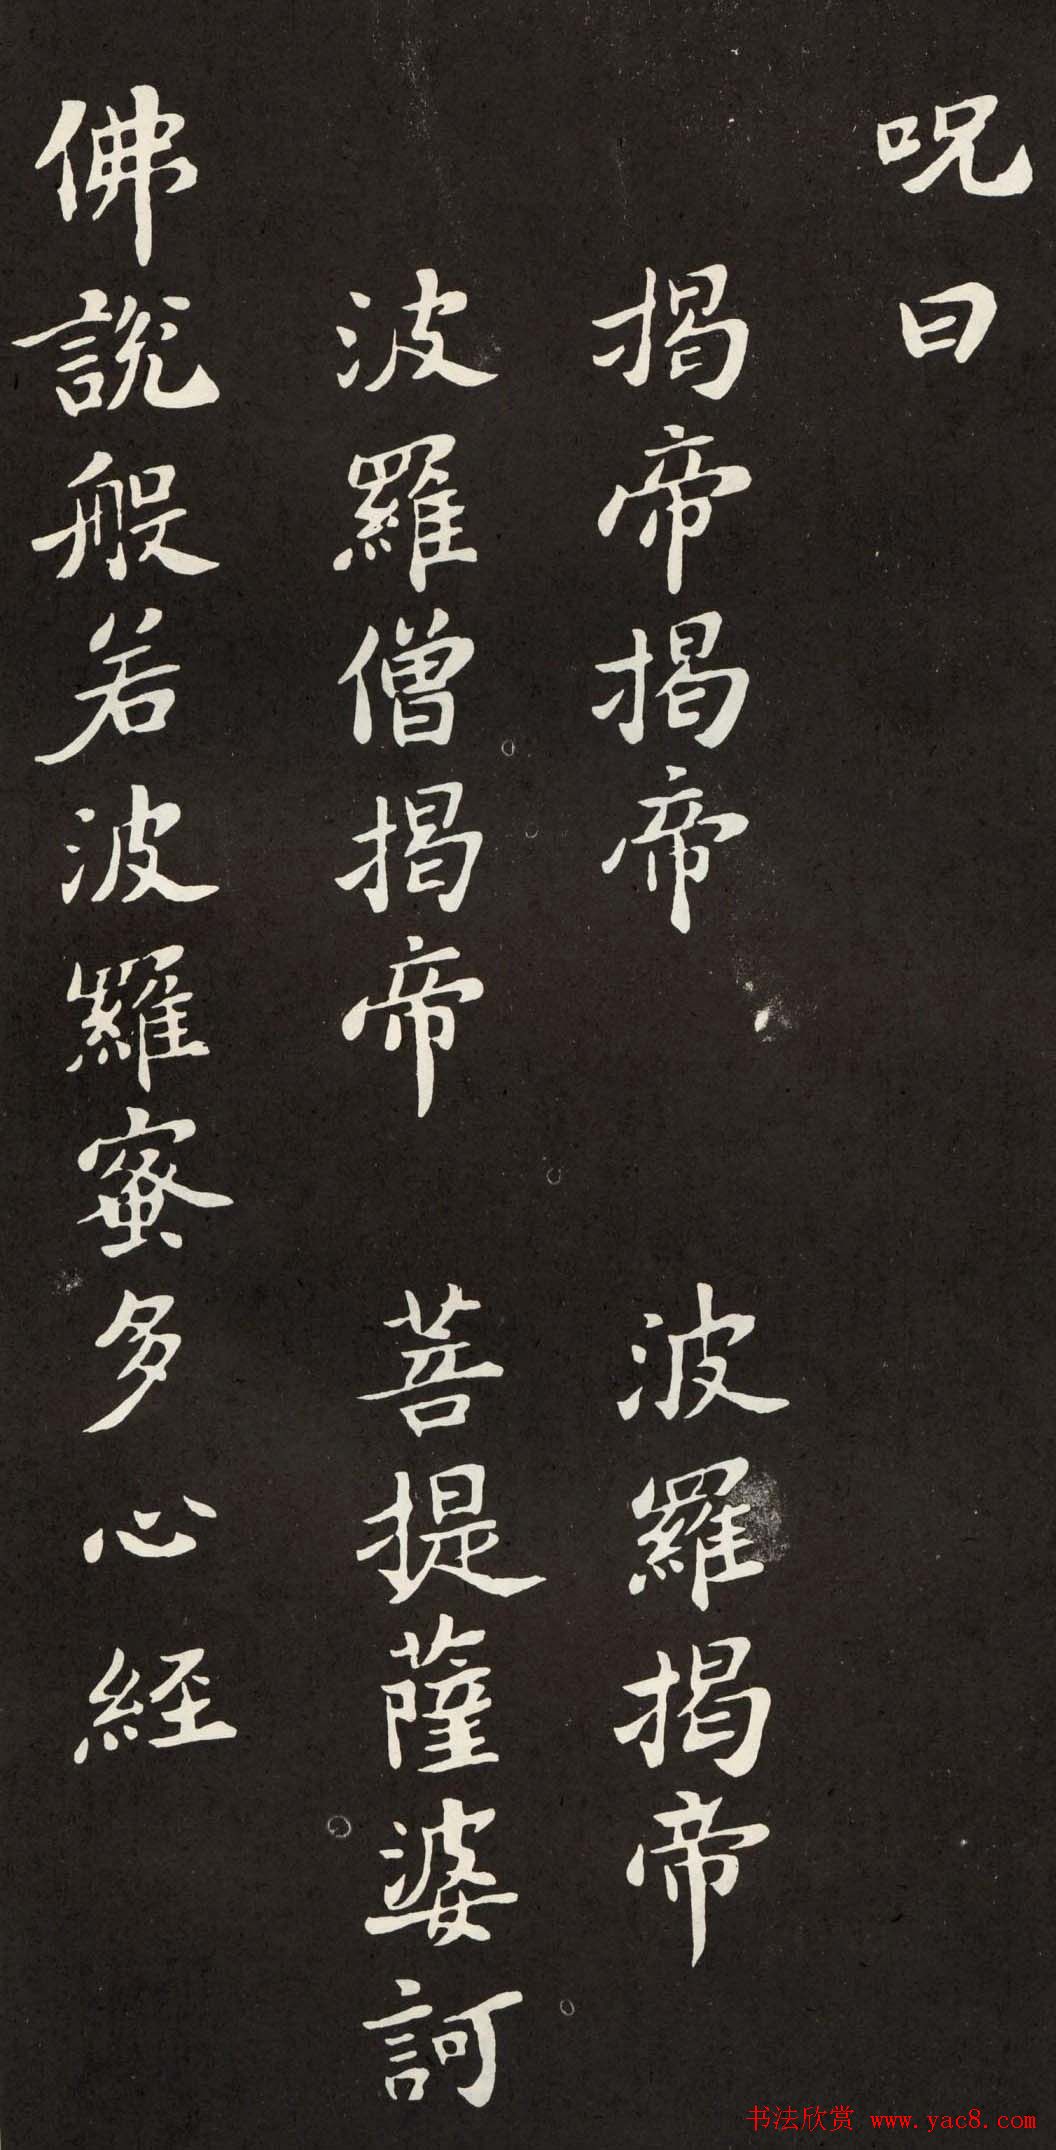 呪曰
揭帝揭帝 波羅揭帝
波羅僧揭帝 菩提薩婆訶
佛說般若波羅蜜多心經
书法欣赏 www.yac8.com